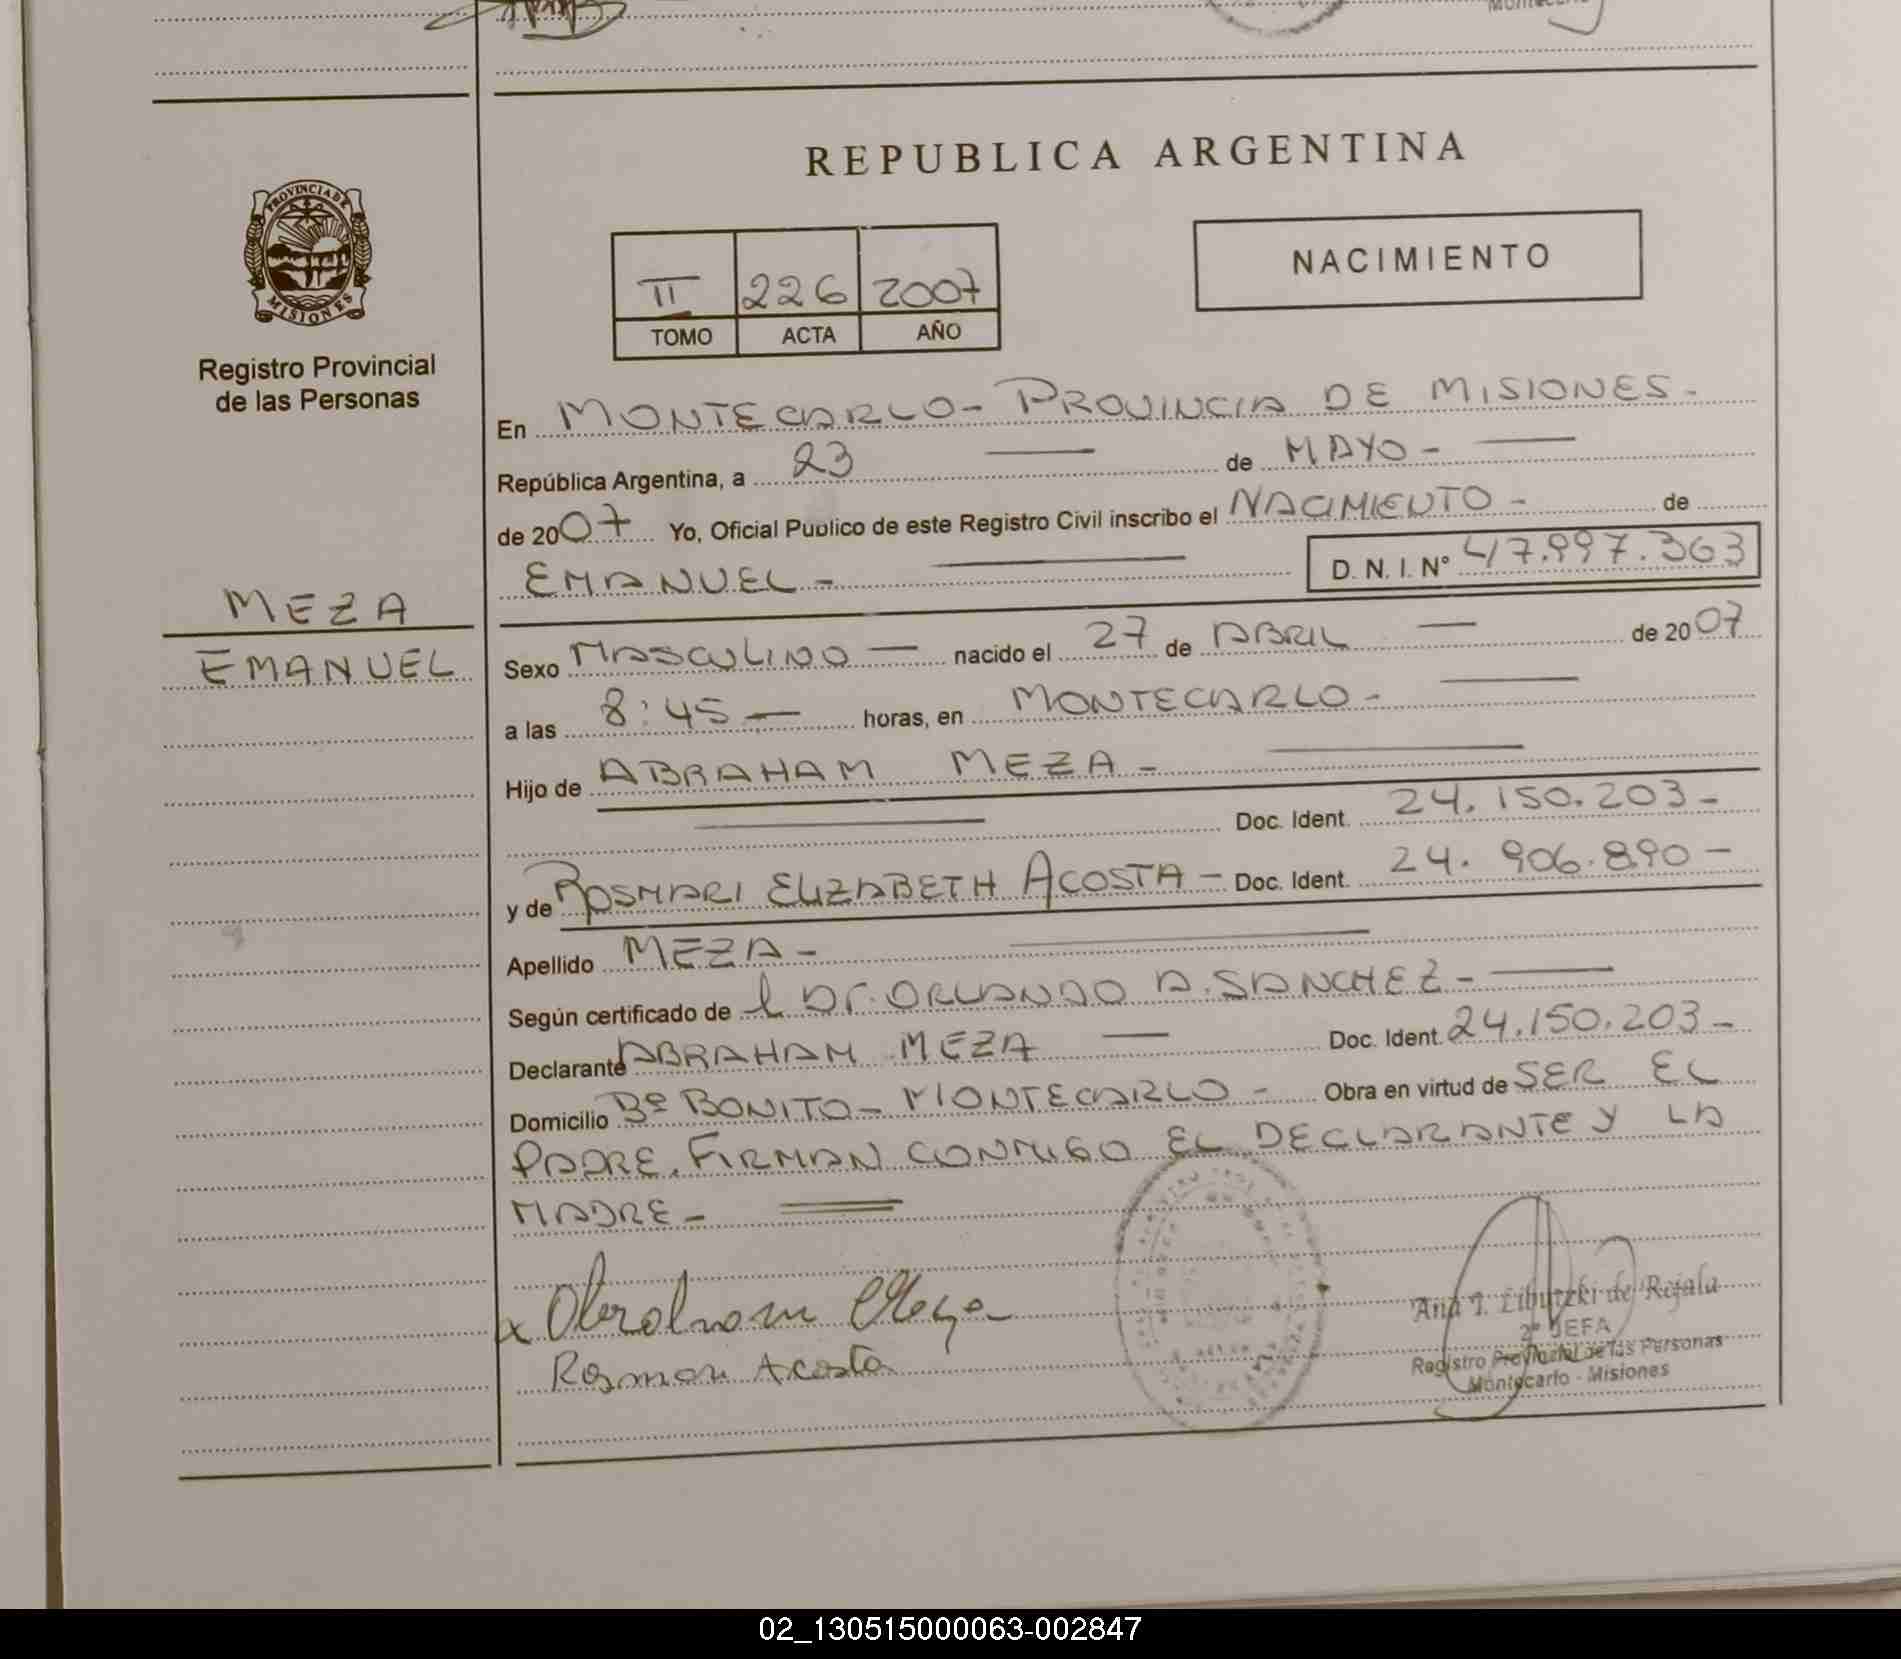 Montecarlo
REPUBLICA ARGENTINA
PROVINCIA DE
MISIONES
NACIMIENTO
II 226 2007
TOMO ACTA AÑO
Registro Provincial
de las Personas
En MONTECARLO - PROVINCIA DE MISIONES -
República Argentina, a 23 de MAYO -
de 2007 Yo, Oficial Público de este Registro Civil inscribo el NACIMIENTO - de
EMANUEL - D. N. I. N° 47.997.363
MEZA
EMANUEL
Sexo MASCULINO — nacido el 27 de ABRIL — de 2007
a las 8:45 — horas, en MONTECARLO -
Hijo de ABRAHAM MEZA -
Doc. Ident. 24.150.203 -
y de ROSMARI ELIZABETH ACOSTA - Doc. Ident. 24.906.890 -
Apellido MEZA -
Según certificado de l Dr. ORLANDO A. SANCHEZ -
Declarante ABRAHAM MEZA — Doc. Ident. 24.150.203 -
Domicilio Bº BONITO - MONTECARLO - Obra en virtud de SER EL
PADRE. FIRMAN CONMIGO EL DECLARANTE Y LA
MADRE -
x Abraham Meza
Rosmari Acosta
Ana I. de Rojala
2º JEFA
Registro Provincial de las Personas
Montecarlo - Misiones
02_130515000063-002847